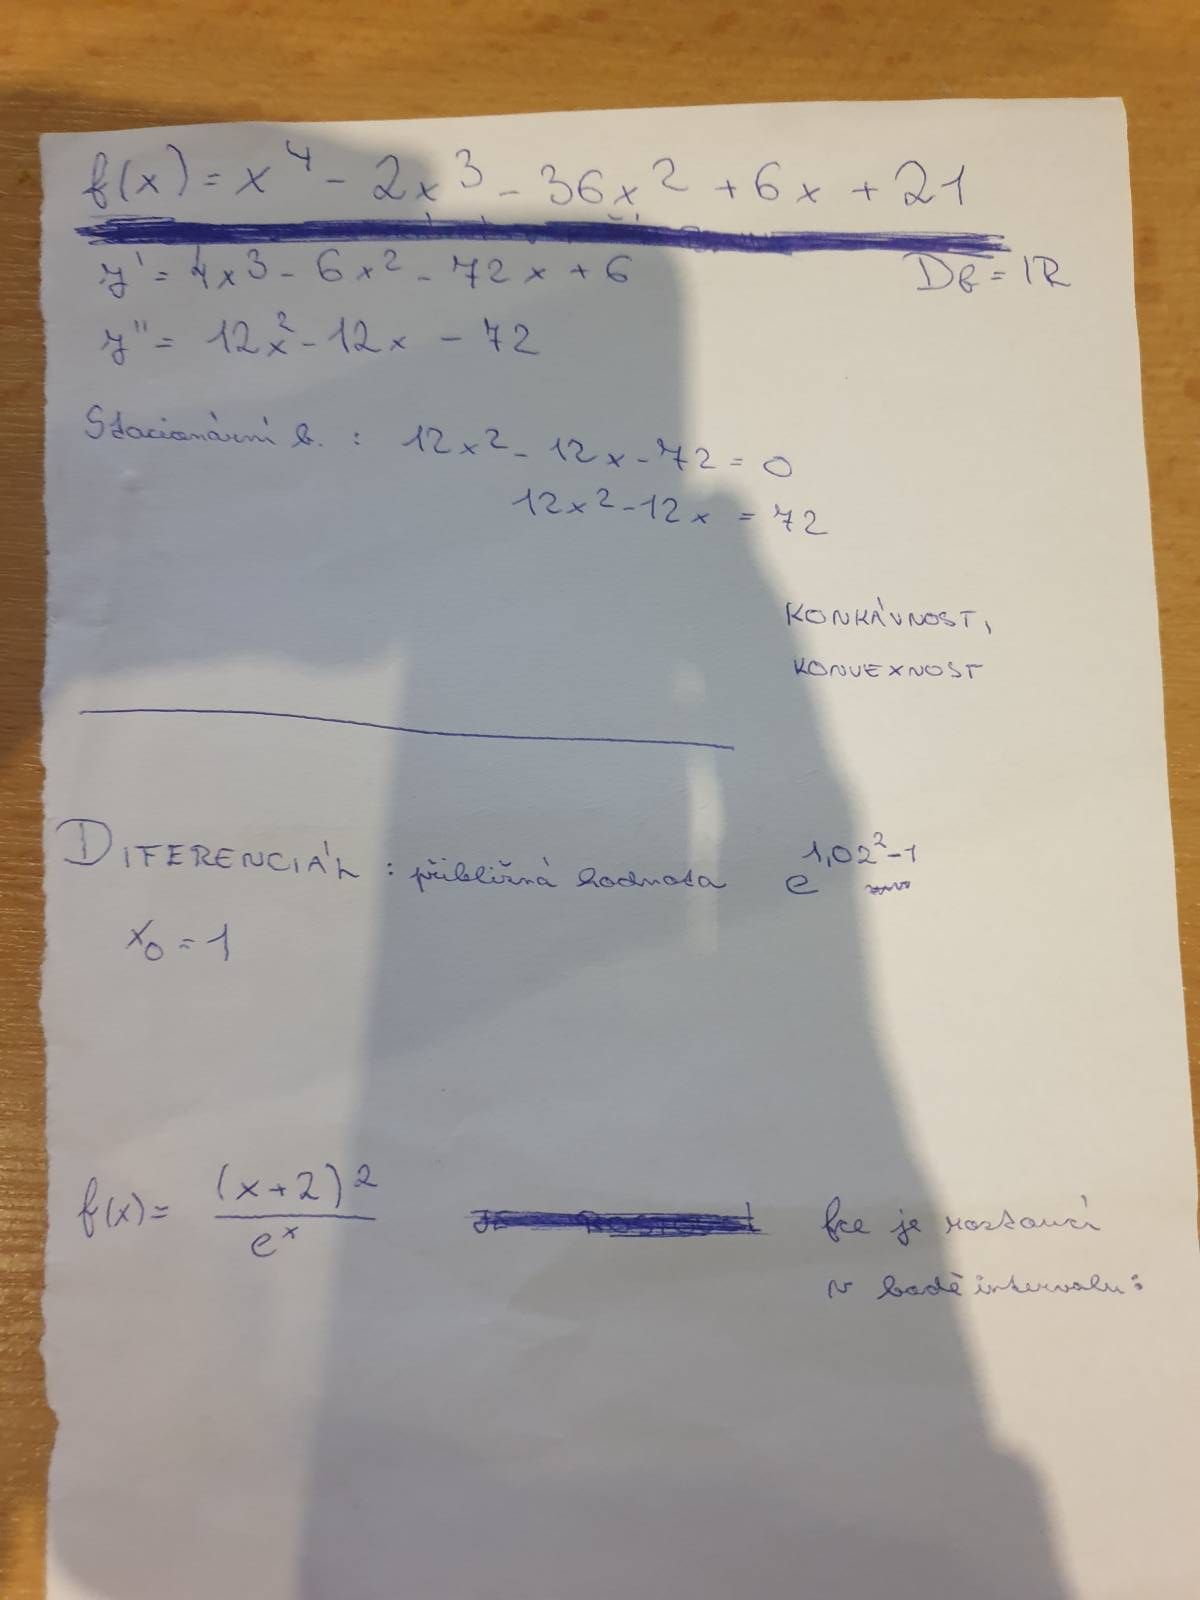 f(x) = x⁴ - 2x³ - 36x² + 6x + 21
y' = 4x³ - 6x² - 72x + 6 Df = IR
y'' = 12x² - 12x - 72
Stacionární b. : 12x² - 12x - 72 = 0
12x² - 12x = 72
KONKÁVNOST,
KONVEXNOST
DIFERENCIÁL : přibližná hodnota e^(1,02² - 1)
x₀ = 1
f(x) = (x+2)² / eˣ fce je rostoucí
v bodě intervalu :